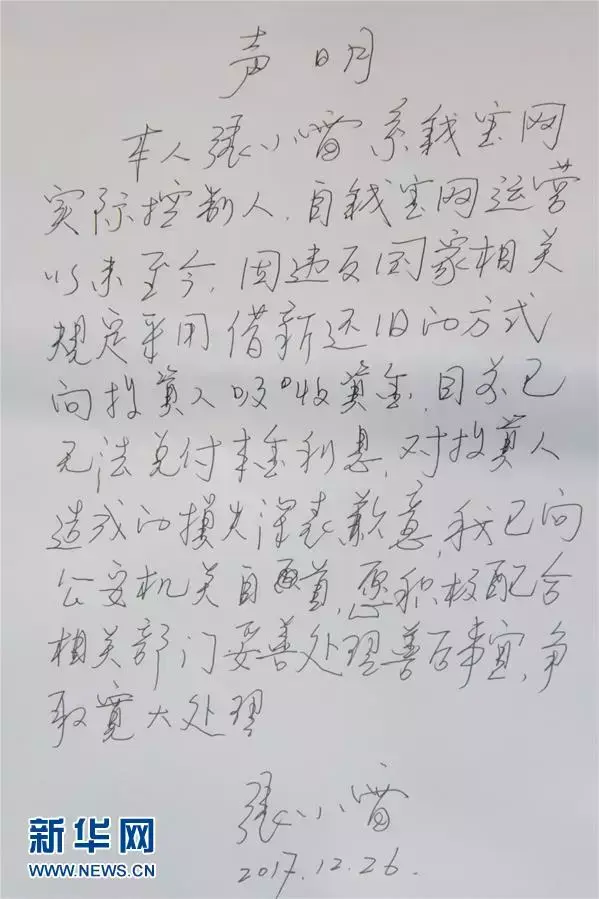 声明
本人張小雷系钱宝网
实际控制人，自钱宝网运营
以来至今，因违反国家相关
規定采用借新还旧的方式
向投資人吸收資金，目前已
无法兑付本金利息，对投資人
造成的损失深表歉意，我已向
公安机关自首，愿积极配合
相关部门妥善处理善后事宜，争
取寬大处理
張小雷
2017.12.26.
新华网
WWW.NEWS.CN